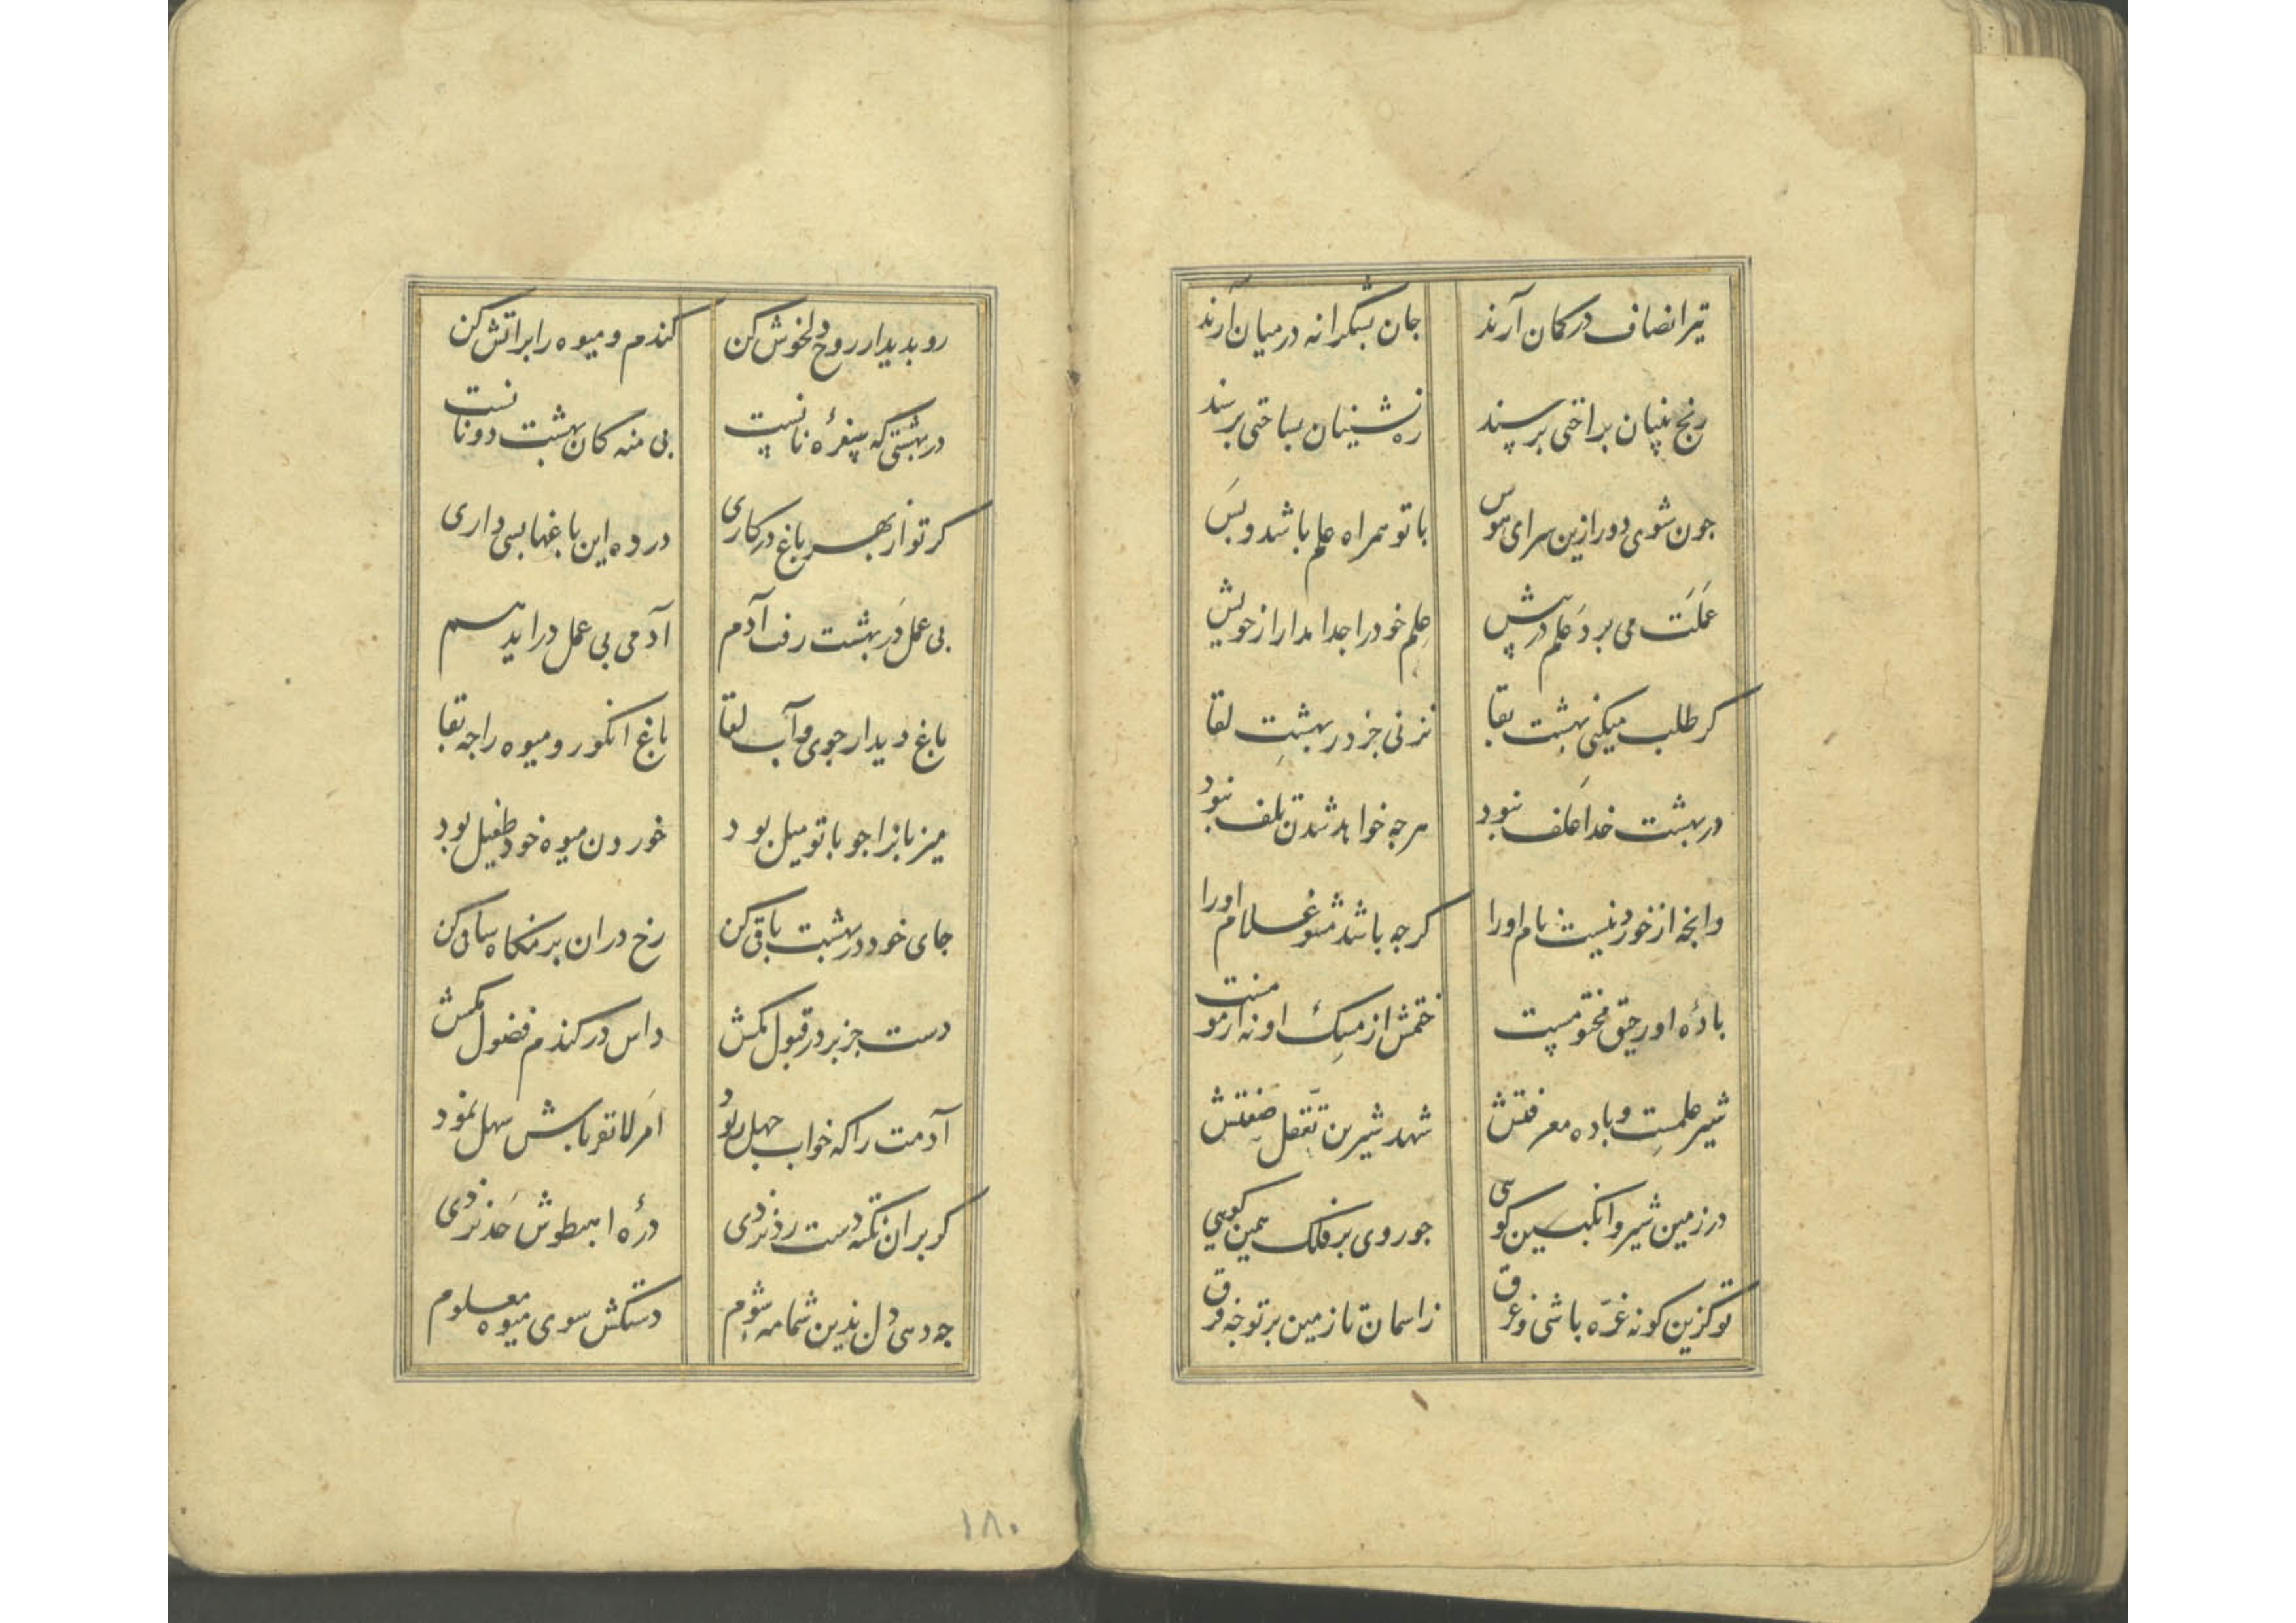 تیر انصاف در کمان آرند جان بشکرانه در میان آرند
رنج پنهان براحتی برسند ره نشینان بساحتی برسند
جون شوی دور ازین سرای هوس با تو همراه علم باشد و بس
عملت می برد علم در پیش علم خود را جدا مدار از خویش
کر طلب میکنی بهشت بقا نزنی جز در بهشت لقا
در بهشت خدا علف نبود هرجه خواهد شدن تلف نبود
وانجه از خورد نیست نام او را کرجه باشد مشو غلام او را
بادهٔ او رحیق مختومست ختمش از مسک او نه از مومست
شیر علمست و باده معرفتش شهد شیرین تعقل صفتش
در زمین شیر و انکبین کویی جو روی بر فلک همین کویی
تو کزین کونه غره باشی و غرق ز اسمان تا زمین بر تو جه فرق
رو بدیدار روح دلخوش کن کندم و میوه را بر اتش کن
در بهشتی که سفرهٔ نانست پی منه کان بهشت دونانست
کر تو از بهر باغ در کاری در ده این باغها بسی داری
بی عمل در بهشت رفت آدم آدمی بی عمل دراید هم
باغ دیدار جوی و آب لقا باغ انکور و میوه را جه بقا
میزبانرا جو با تو میل بود خوردن میوه خود طفیل بود
جای خود در بهشت باقی کن رخ دران بزمکاه ساقی کن
دست جز بر در قبول مکش داس در کندم فضول مکش
آدمت را که خواب جهل ربود امر لا تقربا بس سهل نمود
کو بران نکته دست رد نزدی درهٔ اهبطوش حد نزدی
جه دهی دل بدین شمامه شوم دستکش سوی میوه معلوم
۱۸۰